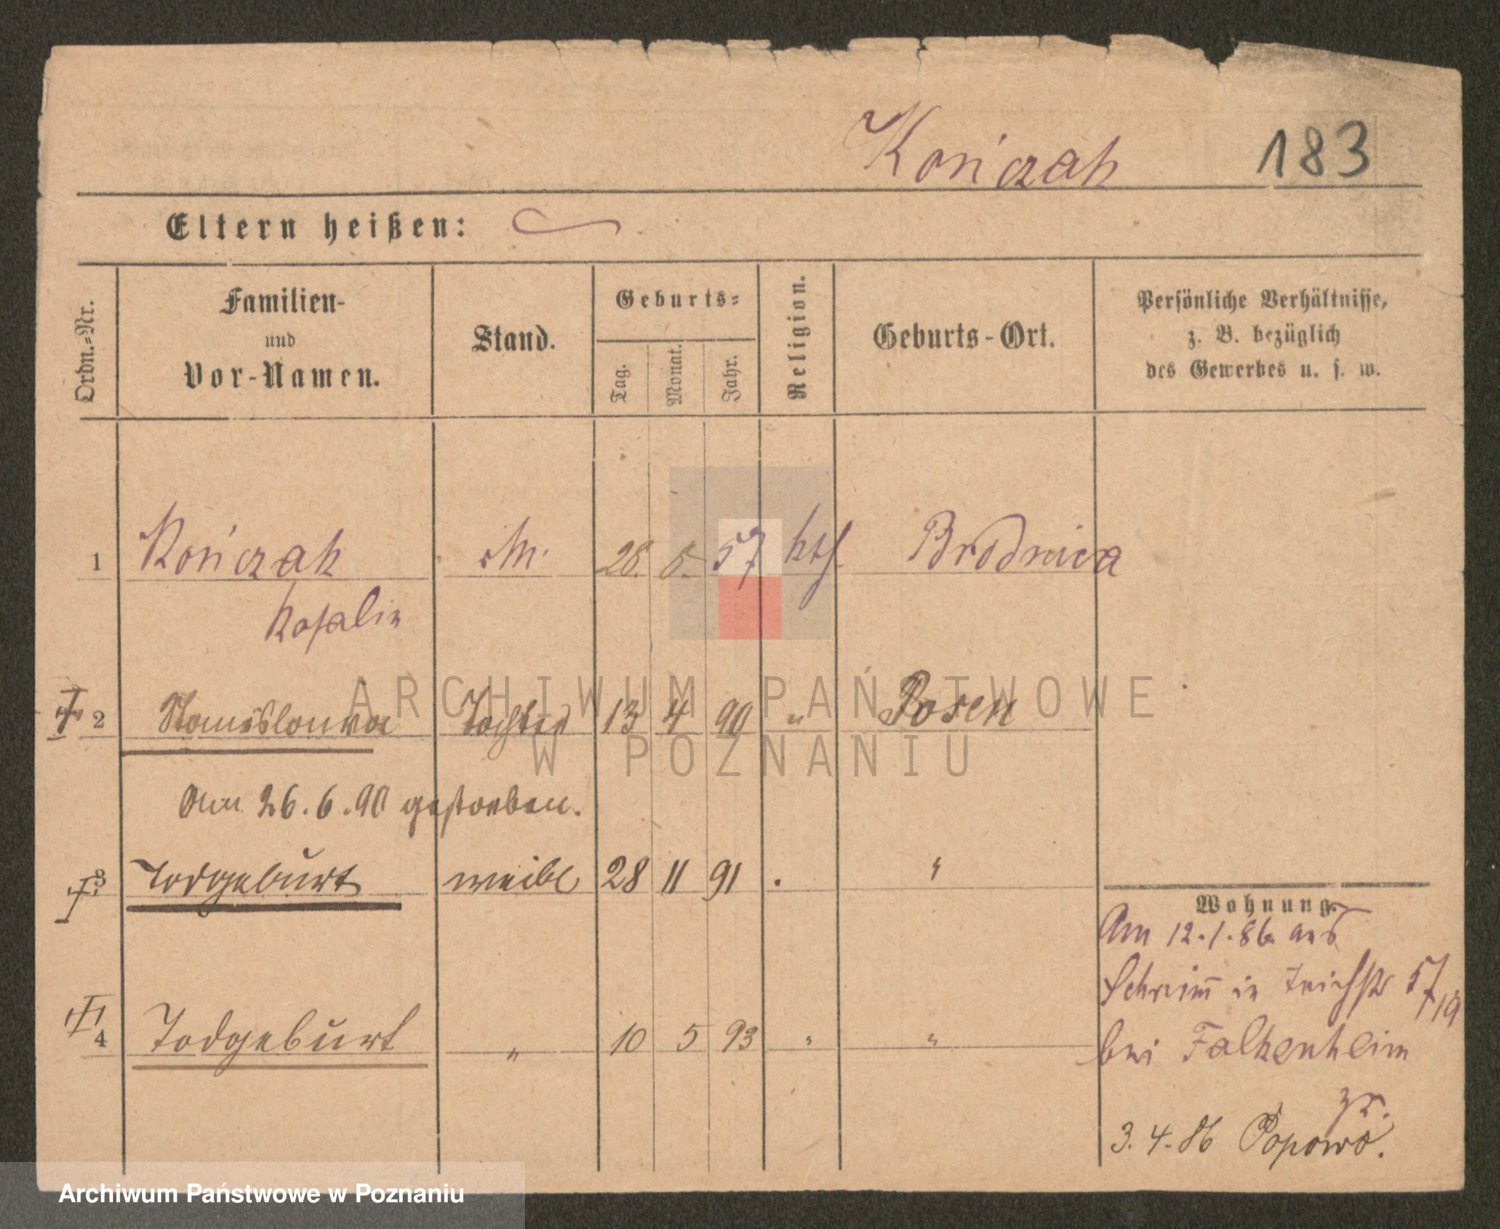 Kończak 183
Eltern heißen:
Ordn.-Nr.
Familien-
und
Vor-Namen.
Stand.
Geburts-
Tag.
Monat.
Jahr.
Religion.
Geburts-Ort.
Persönliche Verhältnisse,
z. B. bezüglich
des Gewerbes u. s. w.
1 Kończak M. 28. 8. 57 kth. Brodnica
Rosalie
2 Stanislawa Tochter 13 4 90 " Posen
Am 26.6.90 gestorben.
3 Todgeburt weibl 28 11 91 "
4 Todgeburt " 10 5 93 " "
Wohnung.
Am 12.1.86 aus
Schrimm in Teichstr
bei Falkenheim
zr.
3.4.86 Popowo.
ARCHIWUM PAŃSTWOWE
W POZNANIU
Archiwum Państwowe w Poznaniu